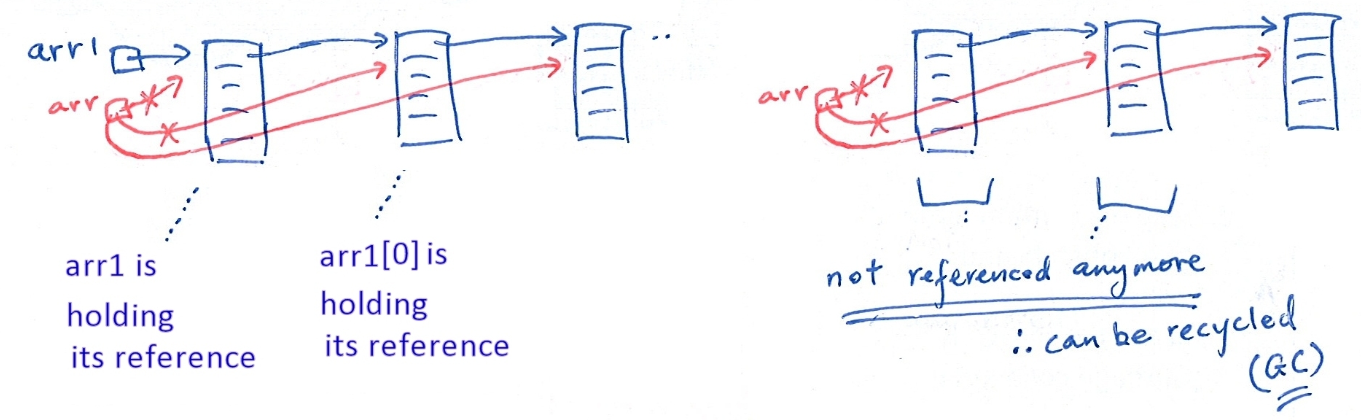 arr1
arr
..
arr1 is
holding
its reference
arr1[0] is
holding
its reference
arr
not referenced anymore
∴ can be recycled
(GC)